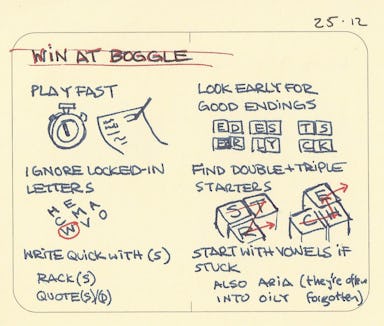 25·12
WIN AT BOGGLE
PLAY FAST
IGNORE LOCKED-IN
LETTERS
H E M A
C W V O
WRITE QUICK WITH (S)
RACK(S)
QUOTE(S)/(D)
LOOK EARLY FOR
GOOD ENDINGS
ED ES TS
ER LY CK
FIND DOUBLE + TRIPLE
STARTERS
S T R
E C H
START WITH VOWELS IF
STUCK
ALSO ARIA (they're often
INTO OILY forgotten)